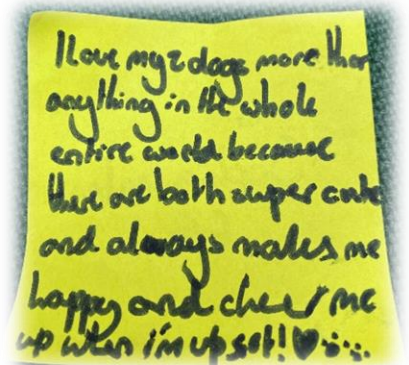 I love my 2 dogs more than
anything in the whole
entire world because
there are both super cute
and always makes me
happy and cheer me
up when i'm upset!♥